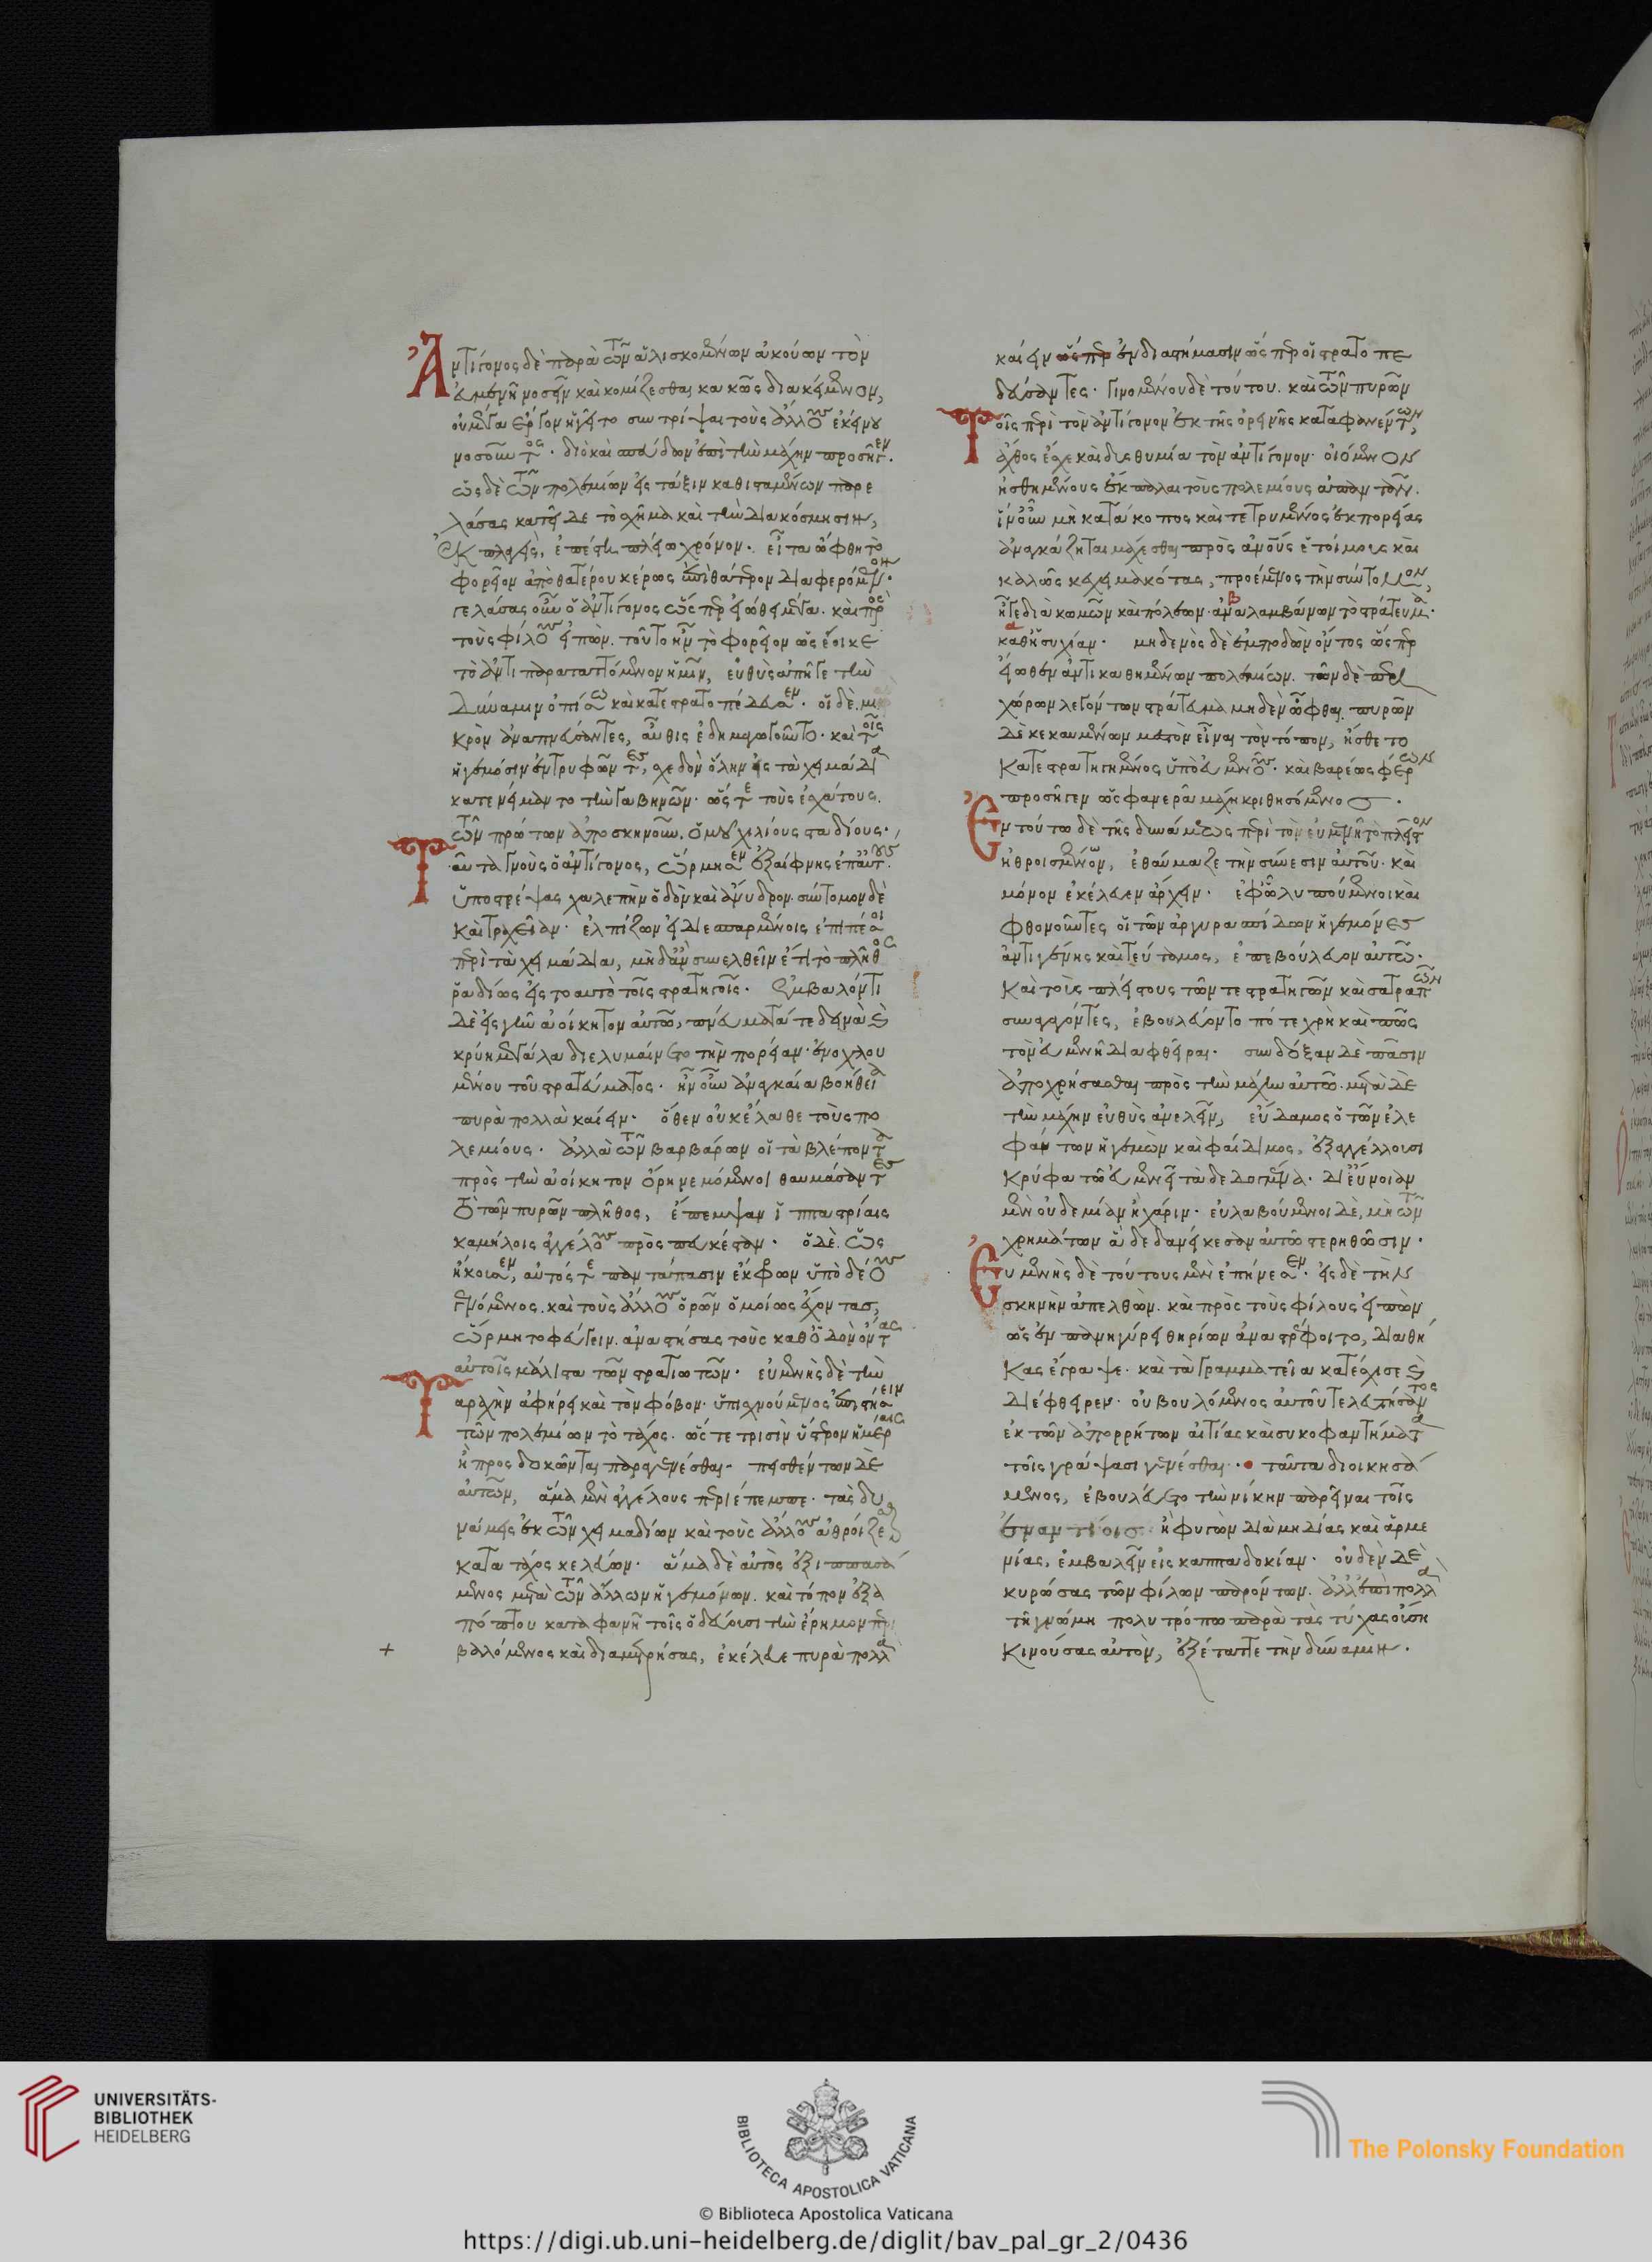 Ἀντίγονος δὲ παρὰ τῶν ἁλισκομένων ἀκούων τὸν
εὐμενῆ νοσεῖν καὶ κομίζεσθαι κακῶς διακείμενον,
οὐ μέγα ἔργον ἡγεῖτο συντρίψαι τοὺς ἄλλους ἐκείνου
νοσοῦντος. διὸ καὶ σπεύδων ἐπὶ τὴν μάχην προσῆγεν.
ὡς δὲ τῶν πολεμίων εἰς τάξιν καθισταμένων παρε
λάσας κατεῖδε τὸ σχῆμα καὶ τὴν διακόσμησιν,
ἐκπλαγεὶς, ἐπέστη πλείω χρόνον. εἶτα ὤφθη τὸ
φορεῖον ἀπὸ θατέρου κέρως ἐπὶ θάτερον διαφερόμενον.
γελάσας οὖν ὁ ἀντίγονος ὥσπερ εἰώθει μέγα. καὶ πρὸς
τοὺς φίλους εἰπὼν. τοῦτο ἦν τὸ φορεῖον ὡς ἔοικε
τὸ ἀντιπαραταττόμενον ἡμῖν, εὐθὺς ἀπῆγε τὴν
δύναμιν ὀπίσω καὶ κατεστρατοπέδευσεν. οἱ δὲ μι
κρὸν ἀναπνεύσαντες, αὖθις ἐδημαγωγοῦντο. καὶ τοῖς
ἡγεμόσιν ἐντρυφῶντες, σχεδὸν ὅλην εἰς τὰ χειμάδια
κατενείμαντο τὴν γαβηνῶν. ὥστε τοὺς ἐσχάτους
τῶν πρώτων ἀποσκηνοῦν. ὁμοῦ χιλίους σταδίους.
Ταῦτα γνοὺς ὁ ἀντίγονος, ὥρμησεν ἐξαίφνης ἐπ' αὐτοὺς
ὑποστρέψας χαλεπὴν ὁδὸν καὶ ἄνυδρον. σύντομον δὲ
καὶ τραχεῖαν. ἐλπίζων εἰ διεσπαρμένοις ἐπιπέσοι
περὶ τὰ χειμάδια, μὴ δ' ἂν συνελθεῖν ἔτι τὸ πλῆθος
ῥαδίως εἰς τὸ αὐτὸ τοῖς στρατηγοῖς. ἐμβαλόντι
δὲ εἰς γῆν ἀοίκητον αὐτῶ, πνεύματά τε δεινὰ καὶ
κρύη μεγάλα διελυμαίνετο τὴν πορείαν. ἐνοχλου
μένου τοῦ στρατεύματος. ἦν οὖν ἀναγκαία βοήθεια
πυρὰ πολλὰ καίειν. ὅθεν οὐκ ἔλαθε τοὺς πο
λεμίους. ἀλλὰ τῶν βαρβάρων οἱ τὰ βλέποντα
πρὸς τὴν ἀοίκητον ὄρη νεμόμενοι θαυμάσαντες
τὸ τῶν πυρῶν πλῆθος, ἔπεμψαν ἱππαστρίαις
καμήλοις ἀγγέλους πρὸς πευκέσταν. ὁ δὲ. ὡς
ἤκουσεν, αὐτός τε παντάπασιν ἔκφρων ὑπὸ δέους
γενόμενος. καὶ τοὺς ἄλλους ὁρῶν ὁμοίως ἔχοντας,
ὥρμητο φεύγειν. ἀναστήσας τοὺς καθ' ὁδὸν ὄντας
αὐτοῖς μάλιστα τῶν στρατιωτῶν. εὐμένης δὲ τὴν
Ταραχὴν ἀφήρει καὶ τὸν φόβον. ὑπισχνούμενος ἐπιστήσειν
τῶν πολεμίων τὸ τάχος. ὥστε τρισὶν ὕστερον ἡμέραις
ἢ προσδοκῶνται παραγενέσθαι. πεισθέντων δὲ
αὐτῶν, ἅμα μὲν ἀγγέλους περιέπεμπε. τὰς δυ
νάμεις ἐκ τῶν χειμαδίων καὶ τοὺς ἄλλους ἀθροίζεσθαι
κατὰ τάχος κελεύων. ἅμα δὲ αὐτὸς ἐξιππασά
μενος μετὰ τῶν ἄλλων ἡγεμόνων. καὶ τόπον ἐξ ἀ
πόπτου καταφανῆ τοῖς ὁδεύουσι τὴν ἔρημον περι
βαλόμενος καὶ διαμετρήσας, ἐκέλευε πυρὰ πολλὰ
καίειν ὥσπερ ἐν διαστήμασιν ὥσπερ οἱ στρατοπε
δεύοντες. γινομένου δὲ τούτου. καὶ τῶν πυρῶν
Τοῖς περὶ τὸν ἀντίγονον ἐκ τῆς ὀρεινῆς καταφανέντων,
ἄχθος ἔσχε καὶ δυσθυμία τὸν ἀντίγονον. οἰόμενον
ἠσθημένους ἔκπαλαι τοὺς πολεμίους ἀπαντᾶν.
ἵν' οὖν μὴ κατάκοπος καὶ τετρυμένος ἐκ πορείας
ἀναγκάζηται μάχεσθαι πρὸς ἀνθρώπους ἑτοίμους καὶ
καλῶς κεχειμακότας, προέμενος τὴν σύντομον,
ἦγε διὰ κωμῶν καὶ πόλεων. ἀναλαμβάνων τὸ στράτευμα.
καθ' ἡσυχίαν. μηδενὸς δὲ ἐμποδὼν ὄντος ὥσπερ
εἴωθεν ἀντικαθημένων πολεμίων. τῶν δὲ περι
χώρων λεγόντων στράτευμα μηδὲν ὦφθαι. πυρῶν
δὲ κεκαυμένων μεστὸν εἶναι τὸν τόπον, ἤσθετο
κατεστρατηγημένος ὑπὸ εὐμένους. καὶ βαρέως φέρων
προσῆγεν ὡς φανερᾶ μάχη κριθησόμενος.
Ἐν τούτω δὲ τῆς δυνάμεως περὶ τὸν εὐμενῆ τὸ πλεῖστον
ἠθροισμένον, ἐθαύμαζε τὴν σύνεσιν αὐτοῦ. καὶ
μόνον ἐκέλευεν ἄρχειν. ἐφ' ὧ λυπούμενοι καὶ
φθονοῦντες οἱ τῶν ἀργυρασπίδων ἡγεμόνες
ἀντιγένης καὶ τεύταμος, ἐπεβούλευον αὐτῶ.
καὶ τοὺς πλείστους τῶν τε στρατηγῶν καὶ σατραπῶν
συναγαγόντες, ἐβουλεύοντο πότε χρὴ καὶ πῶς
τὸν εὐμενῆ διαφθεῖραι. συνδόξαν δὲ πᾶσιν
ἀποχρήσασθαι πρὸς τὴν μάχην αὐτῶ. μετὰ δὲ
τὴν μάχην εὐθὺς ἀνελεῖν, εὔδαμος ὁ τῶν ἐλε
φάντων ἡγεμὼν καὶ φαίδιμος, ἐξαγγέλλουσι
κρύφα τῶ εὐμένει τὰ δεδογμένα. δι' εὔνοιαν
μὲν οὐδεμίαν ἢ χάριν. εὐλαβούμενοι δὲ, μὴ τῶν
χρημάτων ἃ δεδανείκεσαν αὐτῶ στερηθῶσιν.
Εὐμένης δὲ τούτους μὲν ἐπήνεσεν. εἰς δὲ τὴν
σκηνὴν ἀπελθὼν. καὶ πρὸς τοὺς φίλους εἰπὼν
ὡς ἐν πανηγύρει θηρίων ἀναστρέφοιτο, διαθή
κας ἔγραψε. καὶ τὰ γραμματεῖα κατέσχισε καὶ
διέφθειρεν. οὐ βουλόμενος αὐτοῦ τελευτήσαντος
ἐκ τῶν ἀπορρήτων αἰτίας καὶ συκοφαντήματα
τοῖς γράψασι γενέσθαι. ταῦτα διοικησά
μενος, ἐβουλεύετο τὴν νίκην παρεῖναι τοῖς
ἐναντίοις. ἢ φυγὼν διὰ μηδίας καὶ ἀρμε
νίας, ἐμβαλεῖν εἰς καππαδοκίαν. οὐδὲν δὲ
κυρώσας τῶν φίλων παρόντων. ἀλλ' ἐπὶ πολλὰ
τῆ γνώμη πολυτρόπω παρὰ τὰς τύχας οὔση
κινούσας αὐτὸν, ἐξέταττε τὴν δύναμιν.
UNIVERSITÄTS-
BIBLIOTHEK
HEIDELBERG
BIBLIOTECA APOSTOLICA VATICANA
The Polonsky Foundation
© Biblioteca Apostolica Vaticana
https://digi.ub.uni-heidelberg.de/diglit/bav_pal_gr_2/0436